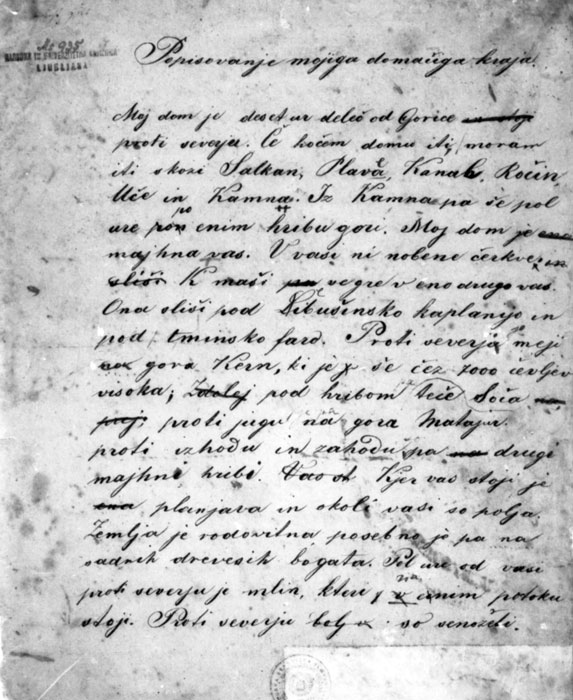 No 935
NARODNA IN UNIVERZITETNA KNJIŽNICA
LJUBLJANA
Popisovanje mojiga domačiga kraja.
Moj dom je deset ur deleč od Gorice
proti severja. Če hočem domu iti, moram
iti skozi Salkan, Plavà, Kanal, Ročin,
Uče in Kamna. Iz Kamna pa še pol
ure po enim hribu gori. Moj dom je ena
majhna vas. V vasi ni nobene čerkve,
sliši K maši se gre v eno drugo vas.
Ona sliši pod Libušinsko kaplanijo in
pod tminsko faro. Proti severja meji
gora Kern, ki je še čez 7000 čevljev
visoka; Zdolej pod hribom teče Soča
proti jugu je pa gora Matajur.
proti izhodu in zahodu pa drugi
majhni hribi. Kjer vas stoji je
ena planjava in okoli vasi so polja.
Zemlja je rodovitna posebno je pa na
sadnih drevesih bogata. Pol ure od vasi
proti severju je mlin, kteri v enem potoku
stoji. Proti severju bolj so senožeti.